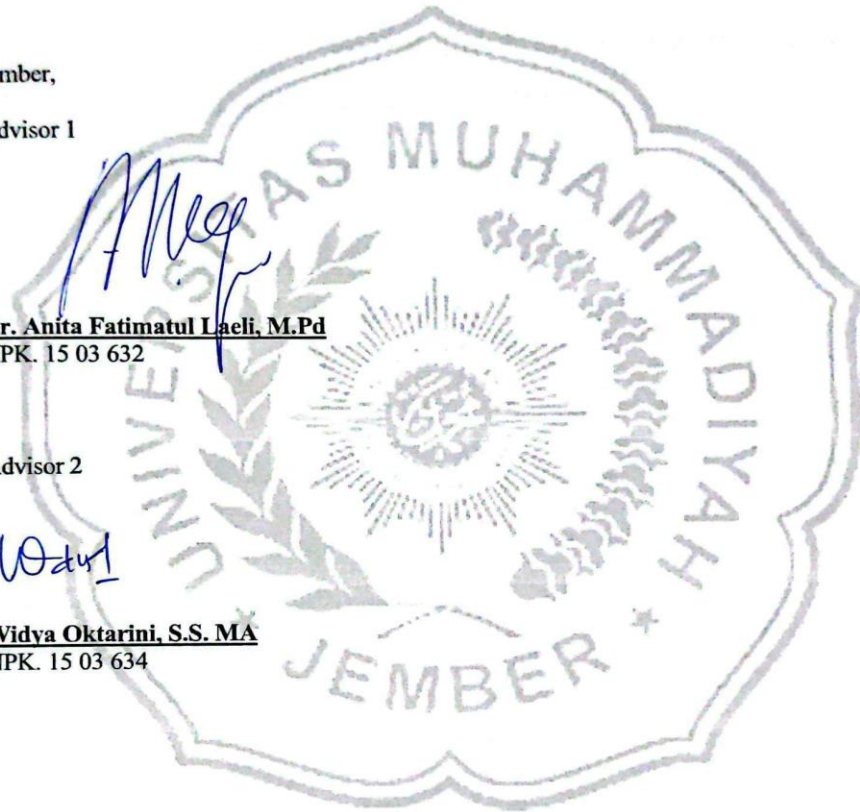 mber,
dvisor 1
r. Anita Fatimatul Laeli, M.Pd
PK. 15 03 632
dvisor 2
Vidya Oktarini, S.S. MA
IPK. 15 03 634
UNIVERSITAS MUHAMMADIYAH
* JEMBER *